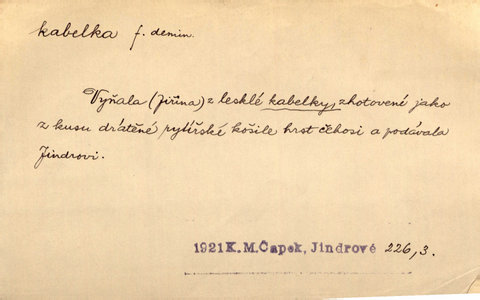 kabelka f. demin.
Vyňala (Jiřina) z lesklé kabelky, zhotovené jako
z kusu drátěné rytířské košile hrst čehosi a podávala
Jindrovi.
1921 K. M. Čapek, Jindrové 226,3.